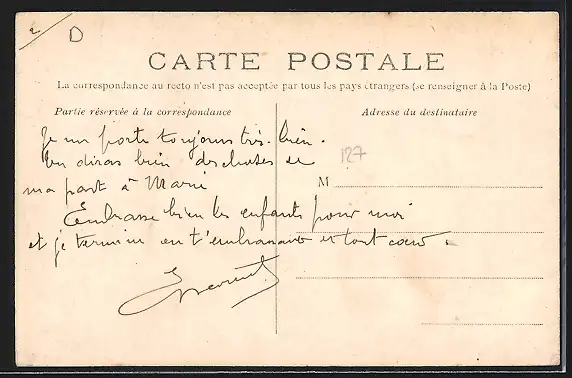 2
D
CARTE POSTALE
La correspondance au recto n'est pas acceptée par tous les pays étrangers (se renseigner à la Poste)
Partie réservée à la correspondance
Adresse du destinataire
Je me porte toujours très bien.
tu diras bien des choses de
127
ma part à Marie
M
Embrasse bien les enfants pour moi
et je termine en t'embrassant et tout cœur.